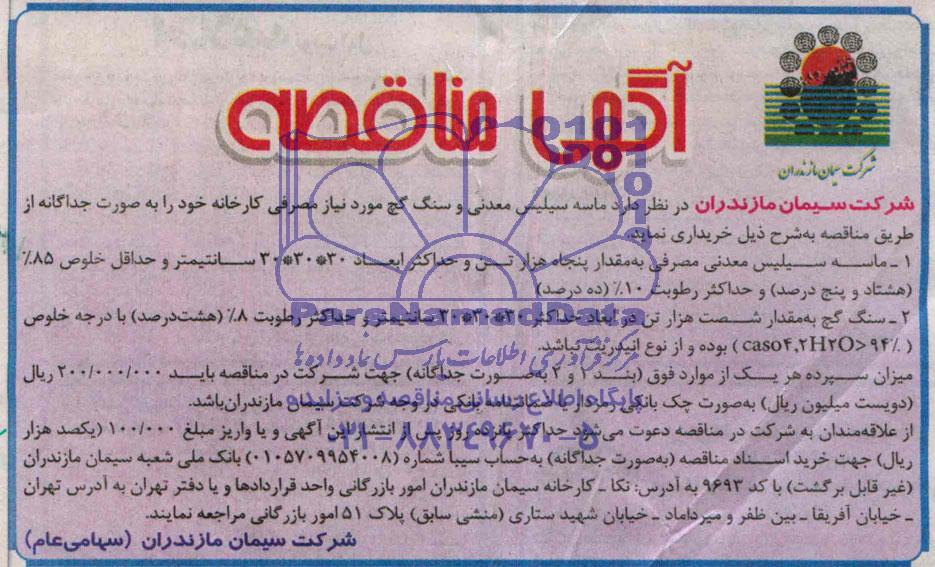 آگهی مناقصه
شرکت سیمان مازندران
شرکت سیمان مازندران در نظر دارد ماسه سیلیس معدنی و سنگ گچ مورد نیاز مصرفی کارخانه خود را به صورت جداگانه از
طریق مناقصه به‌شرح ذیل خریداری نماید.
۱ ـ ماسه سیلیس معدنی مصرفی به‌مقدار پنجاه هزار تن و حداکثر ابعاد ۳۰*۳۰*۳۰ سانتیمتر و حداقل خلوص ۸۵٪
(هشتاد و پنج درصد) و حداکثر رطوبت ۱۰٪ (ده درصد)
۲ ـ سنگ گچ به‌مقدار شصت هزار تن در ابعاد حداکثر ۳۰*۳۰*۳۰ سانتیمتر و حداکثر رطوبت ۸٪ (هشت‌درصد) با درجه خلوص
( caso۴,۲H۲O>۹۴٪ ) بوده و از نوع انیدریت نباشد.
میزان سپرده هر یک از موارد فوق (بند ۱ و ۲ به‌صورت جداگانه) جهت شرکت در مناقصه باید ۲۰۰/۰۰۰/۰۰۰ ریال
(دویست میلیون ریال) به‌صورت چک بانکی رمزدار یا ضمانتنامه بانکی در وجه شرکت سیمان مازندران‌باشد.
از علاقه‌مندان به شرکت در مناقصه دعوت می‌شود حداکثر پانزده روز پس از انتشار این آگهی و با واریز مبلغ ۱۰۰/۰۰۰ (یکصد هزار
ریال) جهت خرید اسناد مناقصه (به‌صورت جداگانه) به‌حساب سیبا شماره (۰۱۰۵۷۰۹۹۵۴۰۰۸) بانک ملی شعبه سیمان مازندران
(غیر قابل برگشت) با کد ۹۶۹۳ به آدرس: نکا ـ کارخانه سیمان مازندران امور بازرگانی واحد قراردادها و یا دفتر تهران به آدرس تهران
ـ خیابان آفریقا ـ بین ظفر و میرداماد ـ خیابان شهید ستاری (منشی سابق) پلاک ۵۱ امور بازرگانی مراجعه نمایند.
شرکت سیمان مازندران (سهامی‌عام)
0101
ParsNamadData
مرکز فرآوری اطلاعات پارس نماد داده‌ها
پایگاه اطلاع رسانی مناقصه و مزایده
۰۲۱-۸۸۳۴۹۶۷۰-۵